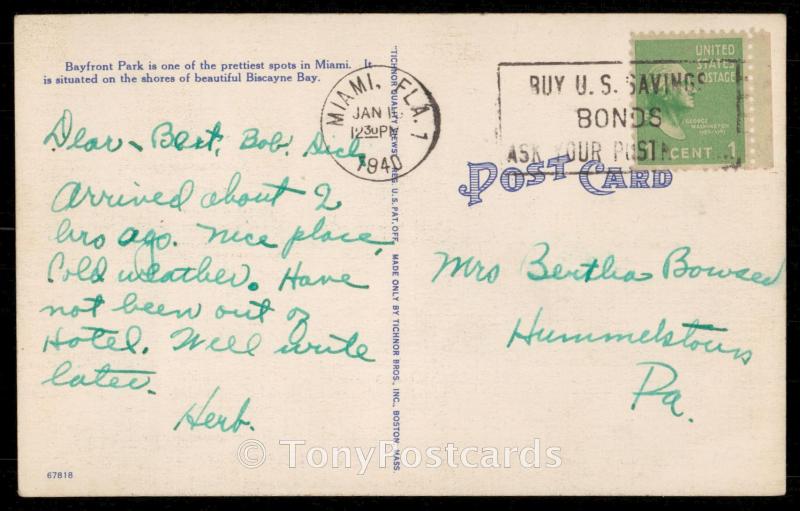 Bayfront Park is one of the prettiest spots in Miami. It
is situated on the shores of beautiful Biscayne Bay.
Dear Bert, Bob, Dick,
Arrived about 2
hrs ago. Nice place,
Cold weather. Have
not been out of
Hotel. Will write
later.
Herb.
67818
MIAMI, FLA. 1
JAN
1230PM
1940
BUY U.S. SAVINGS
BONDS
ASK YOUR
UNITED
STATES
POSTAGE
GEORGE
WASHINGTON
CENT 1
POST CARD
Mrs Bertha
Hummelstown
Pa.
MADE ONLY BY TICHNOR BROS., INC., BOSTON, MASS.
© TonyPostcards